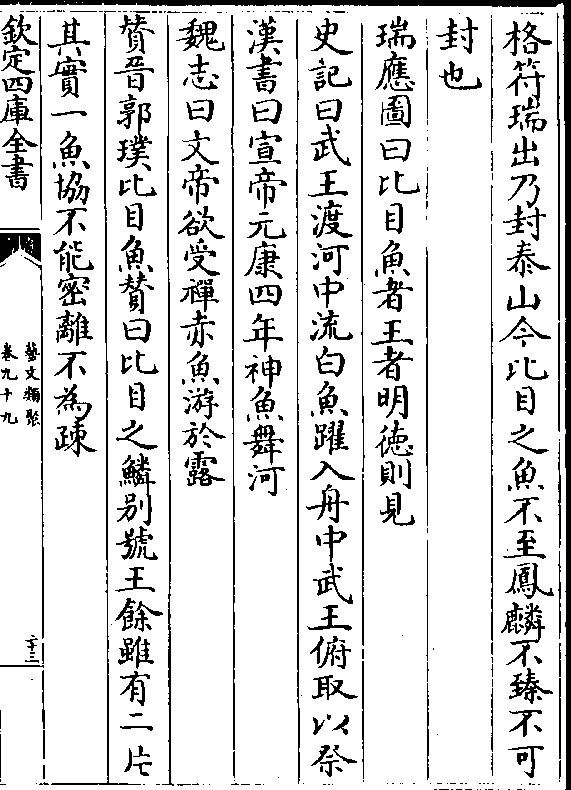 格符瑞出乃封泰山今比目之魚不至鳳麟不臻不可
封也
瑞應圖曰比目魚者王者明徳則見
史記曰武王渡河中流白魚躍入舟中武王俯取以祭
漢書曰宣帝元康四年神魚舞河
魏志曰文帝欲受禪赤魚游於露
賛晉郭璞比目魚賛曰比目之鱗别號王餘雖有二片
其實一魚協不能密離不為疎
欽定四庫全書
藝文類聚
卷九十九
二十三